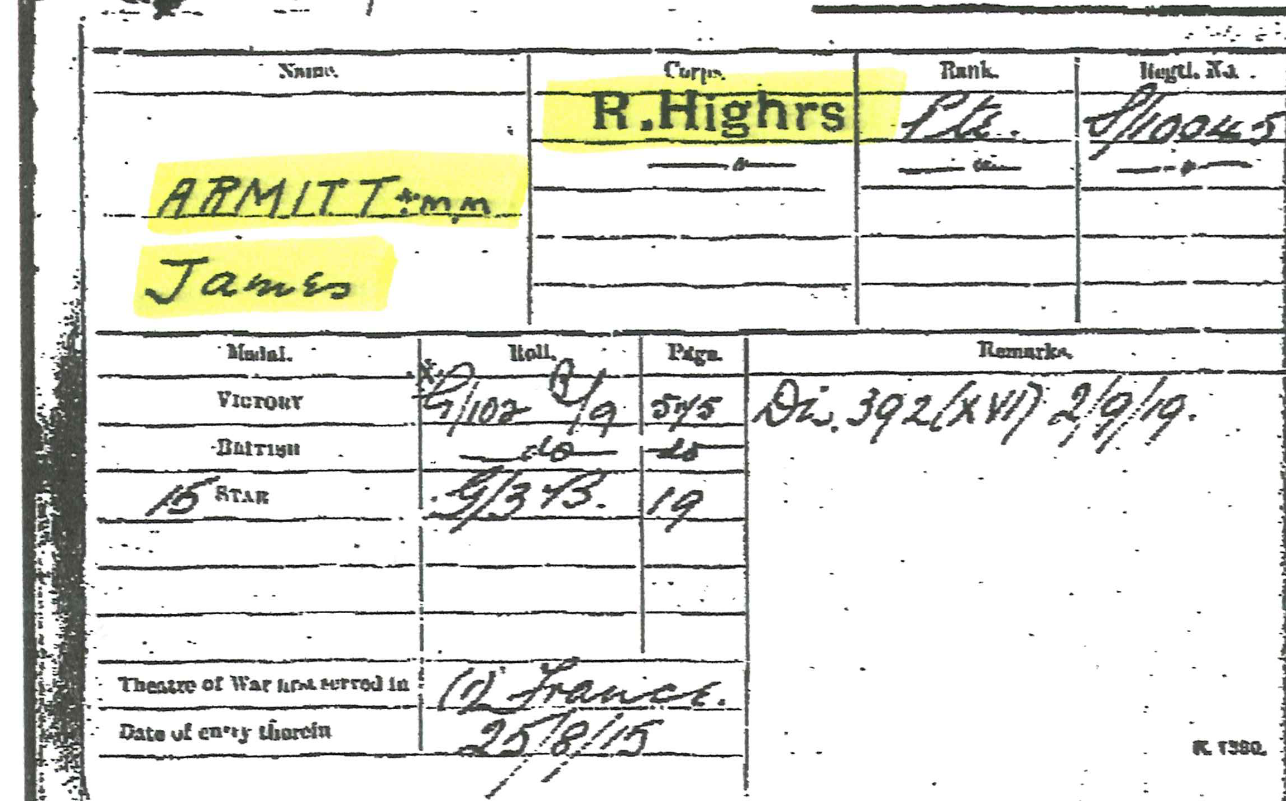 Name. Corps. Rank. Regtl. No.
R.Highrs Pte. S/10045
ARMITT *M.M
James
Medal. Roll. Page. Remarks.
VICTORY G/102 B/9 575 Dis. 392(XVI) 2/9/19.
BRITISH do do
15 STAR G/3 B. 19
Theatre of War first served in (1) France.
Date of entry therein 25/8/15
K. 1380.